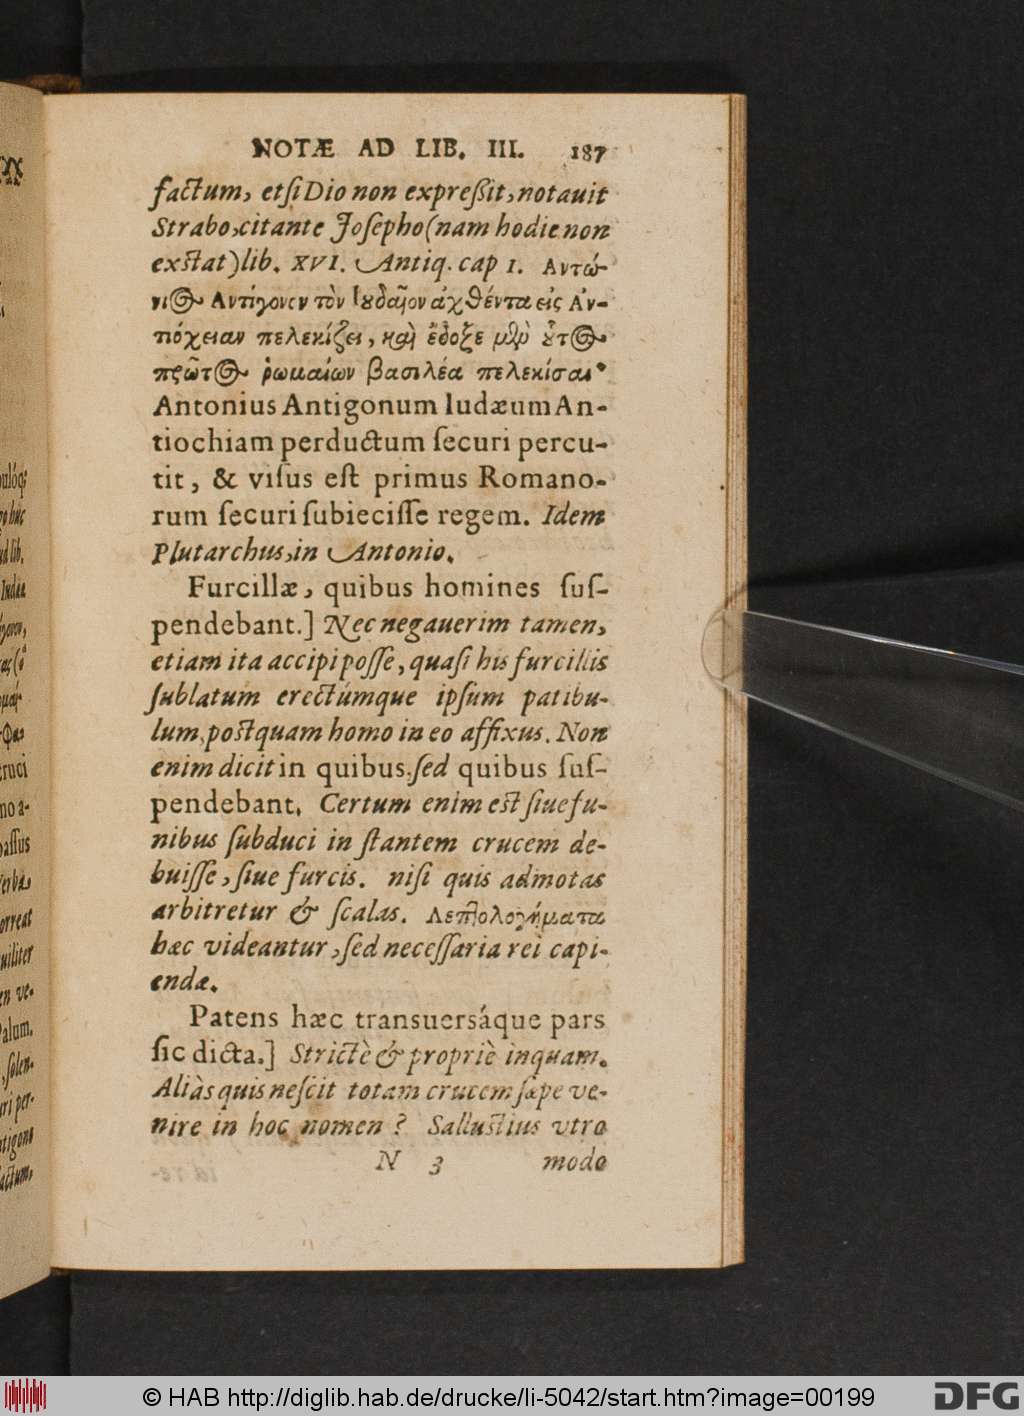 NOTÆ AD LIB. III. 187
factum, etsi Dio non expreßit, notauit
Strabo, citante Josepho (nam hodie non
exstat) lib. XVI. Antiq. cap 1. Αντώ-
νι⊕ Αντίγονον τὸν Ιουδαῖον ἀχθέντα εἰς Αν-
τιόχειαν πελεκίζει, καὶ ἔδοξε μὲν οὗτ⊕
πρῶτ⊕ ῥωμαίων βασιλέα πελεκίσαι·
Antonius Antigonum Iudæum An-
tiochiam perductum ſecuri percu-
tit, & viſus eſt primus Romano-
rum ſecuri ſubieciſſe regem. Idem
Plutarchus, in Antonio.
Furcillæ, quibus homines ſuſ-
pendebant.] Nec negauerim tamen,
etiam ita accipi poſſe, quaſi his furcillis
ſublatum erectúmque ipſum patibu-
lum, poſtquam homo in eo affixus. Non
enim dicit in quibus, ſed quibus ſuſ-
pendebant. Certum enim eſt ſiue fu-
nibus ſubduci in ſtantem crucem de-
buiſſe, ſiue furcis. niſi quis admotas
arbitretur & ſcalas. Λεπτολογήματα
hæc videantur, ſed neceſſaria rei capi-
endæ.
Patens hæc transuersáque pars
ſic dicta.] Strictè & propriè inquam.
Aliàs quis neſcit totam crucem ſæpe ve-
nire in hoc nomen? Salluſtius vtro
N 3 modo
© HAB http://diglib.hab.de/drucke/li-5042/start.htm?image=00199
DFG